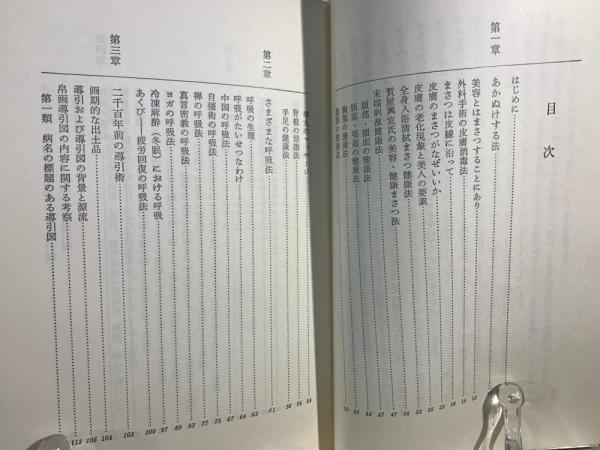 目次
はじめに
第一章 あかぬけする法
美容とはまさつすることにあり
外科手術の皮膚消毒法
まさつは皮線に沿って
皮膚のまさつがなぜいいか
皮膚の老化現象と美人の要素
全身入浴清拭まさつ健康法
賀屋興宣氏の美容・健康まさつ法
末端刺激健康法
頭部・顔面の健康法
頸部・項部の健康法
胸部の健康法
脊椎の健康法
手足の健康法
第二章 さまざまな呼吸法
呼吸の生理
呼吸がたいせつなわけ
中国の呼吸法
自彊術の呼吸法
禅の呼吸法
真言密教の呼吸法
ヨガの呼吸法
冷凍麻酔(冬眠)における呼吸
あくび——疲労回復の呼吸法
第三章 二千百年前の導引術
画期的な出土品
導引および導引図の背景と源流
帛画導引図の内容に関する考察
第一類 病名の標題のある導引図
54
54
56
61
62
63
64
67
75
77
89
97
100
102
104
106
113